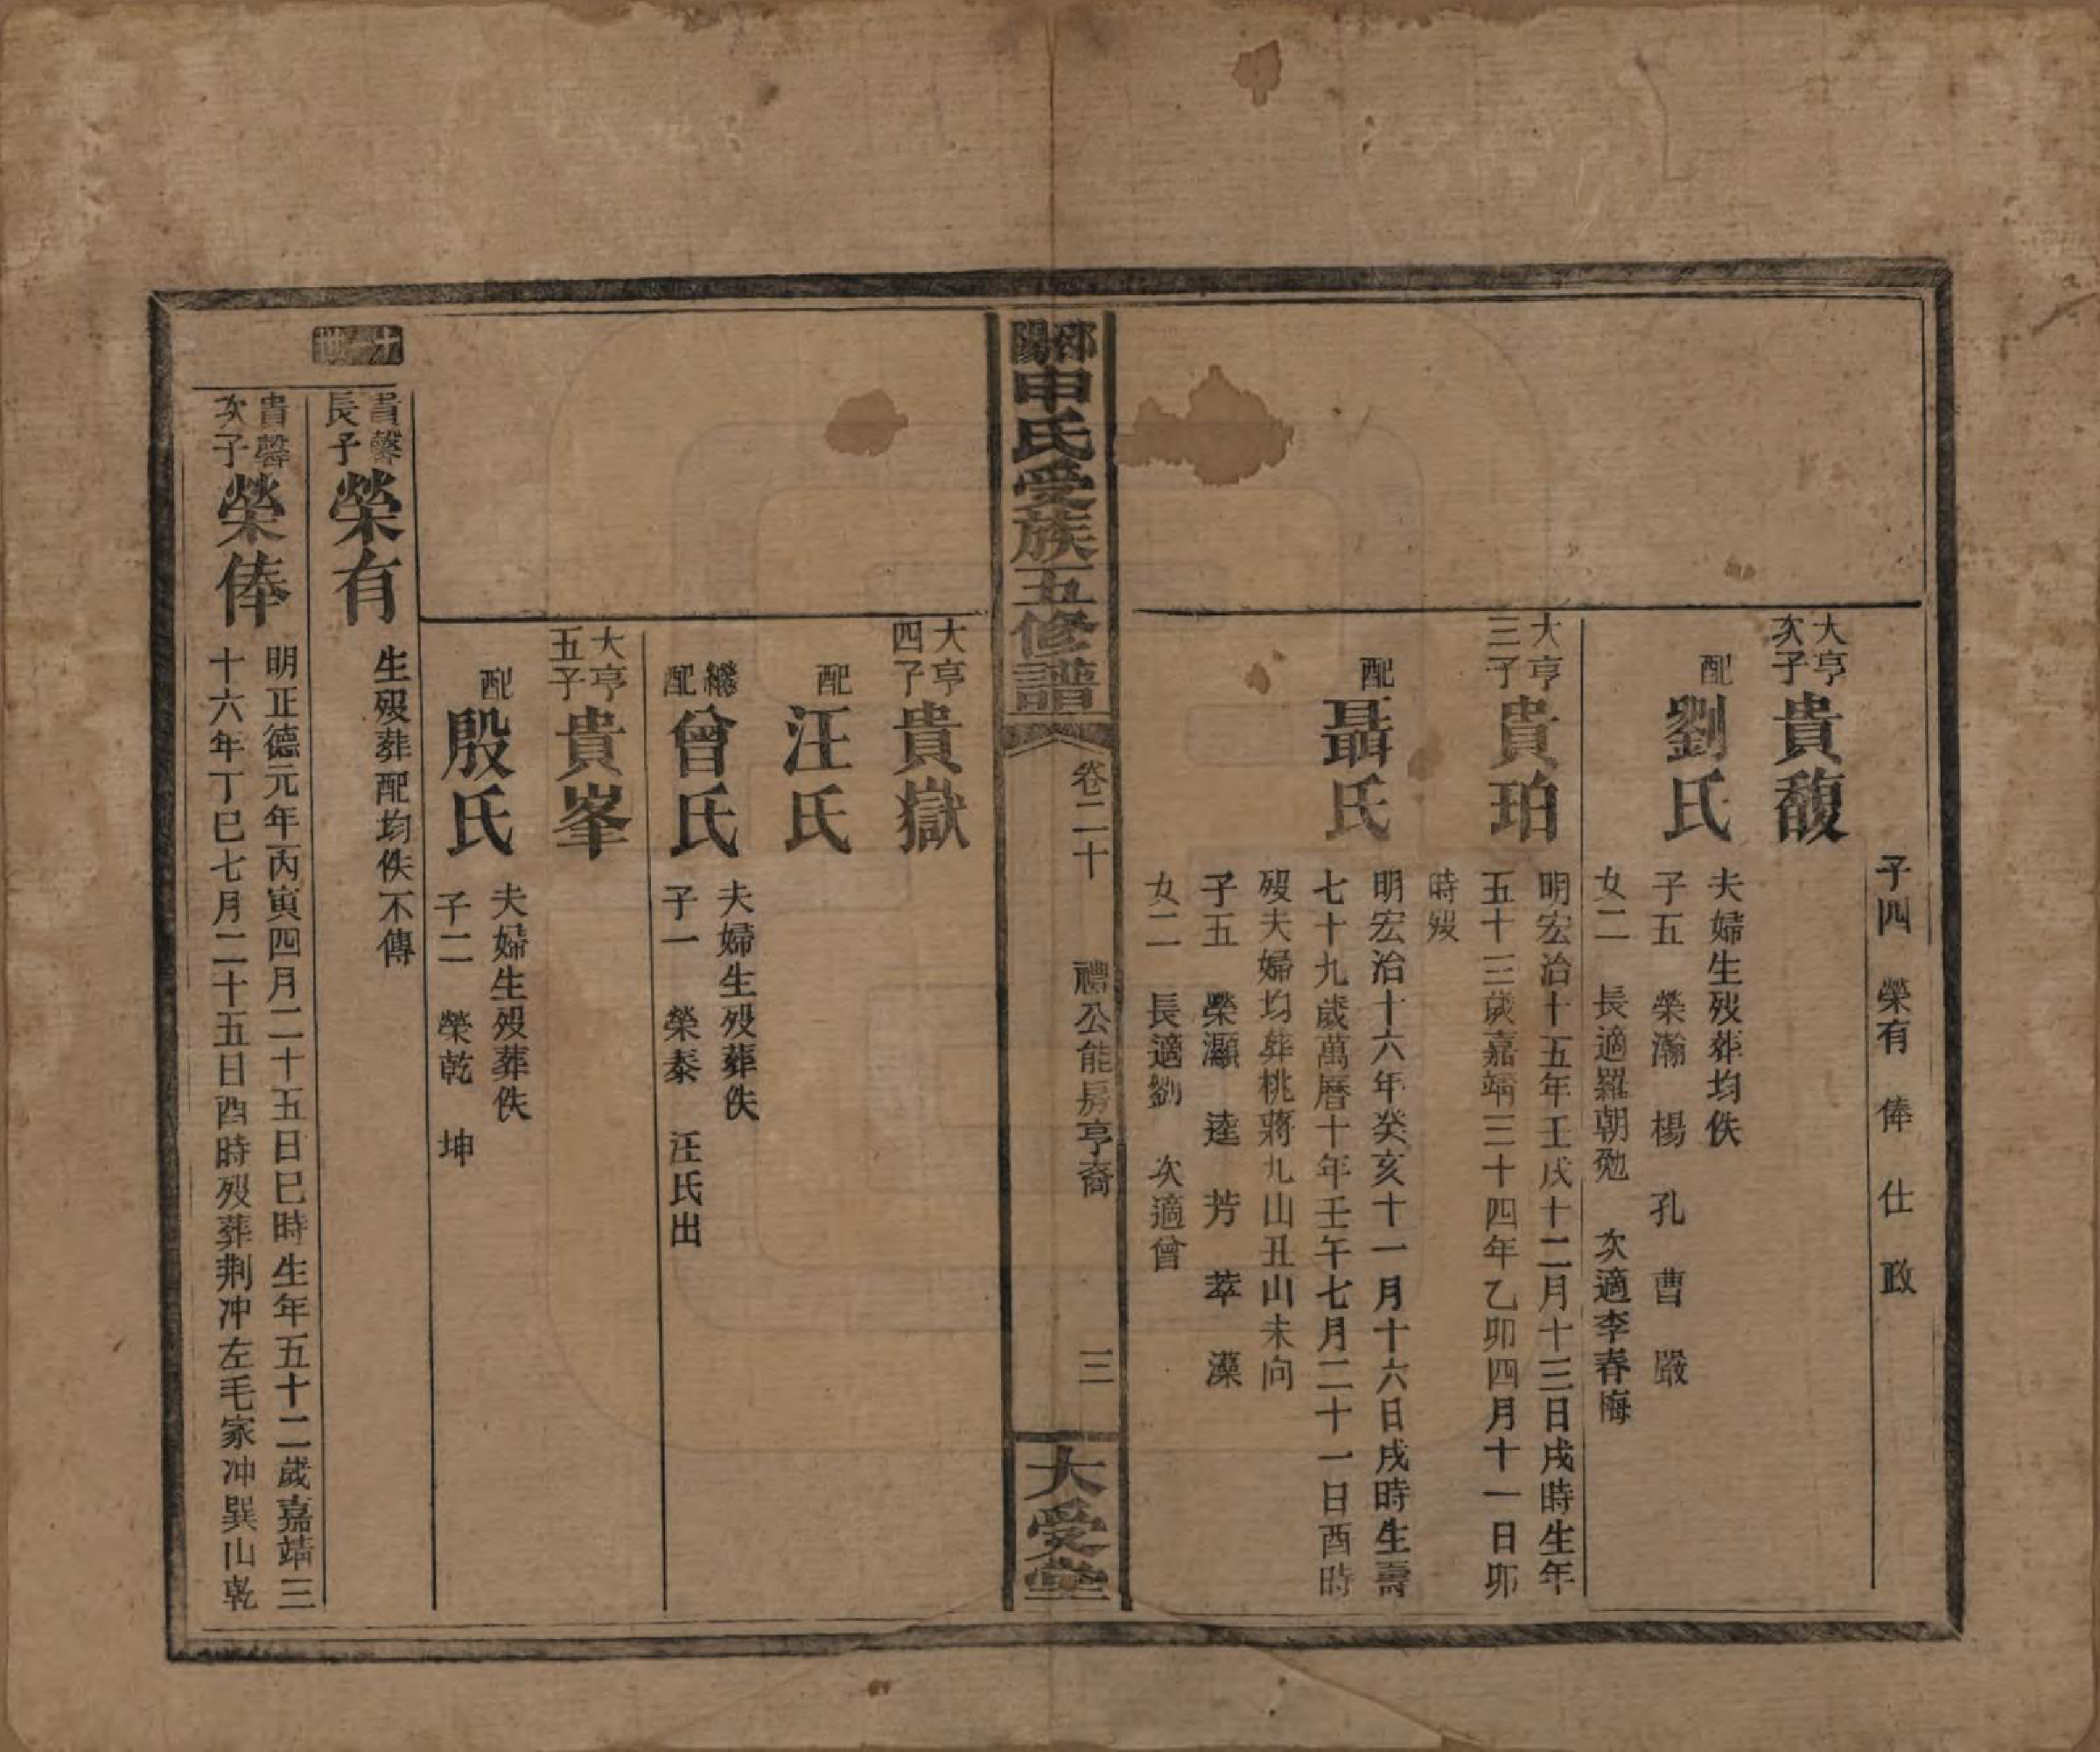 子四　榮有　俸　仕　政
大亨次子貴馥
配劉氏
夫婦生歿葬均佚
子五　榮瀚　楊　孔　曹　嚴
女二　長適羅朝勉　次適李春梅
大亨三子貴珀
明宏治十五年壬戌十二月十三日戌時生年
五十三歲嘉靖三十四年乙卯四月十一日卯
時歿
配聶氏
明宏治十六年癸亥十一月十六日戌時生壽
七十九歲萬曆十年壬午七月二十一日酉時
歿夫婦均葬桃蔣九山丑山未向
子五　榮灝　逵　芳　萃　藻
女二　長適劉　次適曾
邵陽申氏受族五修譜
卷二十
禮公能房亨裔
三
大受堂
大亨四子貴嶽
配汪氏
繼配曾氏
夫婦生歿葬佚
子一　榮泰　汪氏出
大亨五子貴峯
配殷氏
夫婦生歿葬佚
子二　榮乾　坤
十世
貴馨長子榮有
生歿葬配均佚不傳
貴馨次子榮俸
明正德元年丙寅四月二十五日巳時生年五十二歲嘉靖三
十六年丁巳七月二十五日酉時歿葬荆冲左毛家冲巽山乾